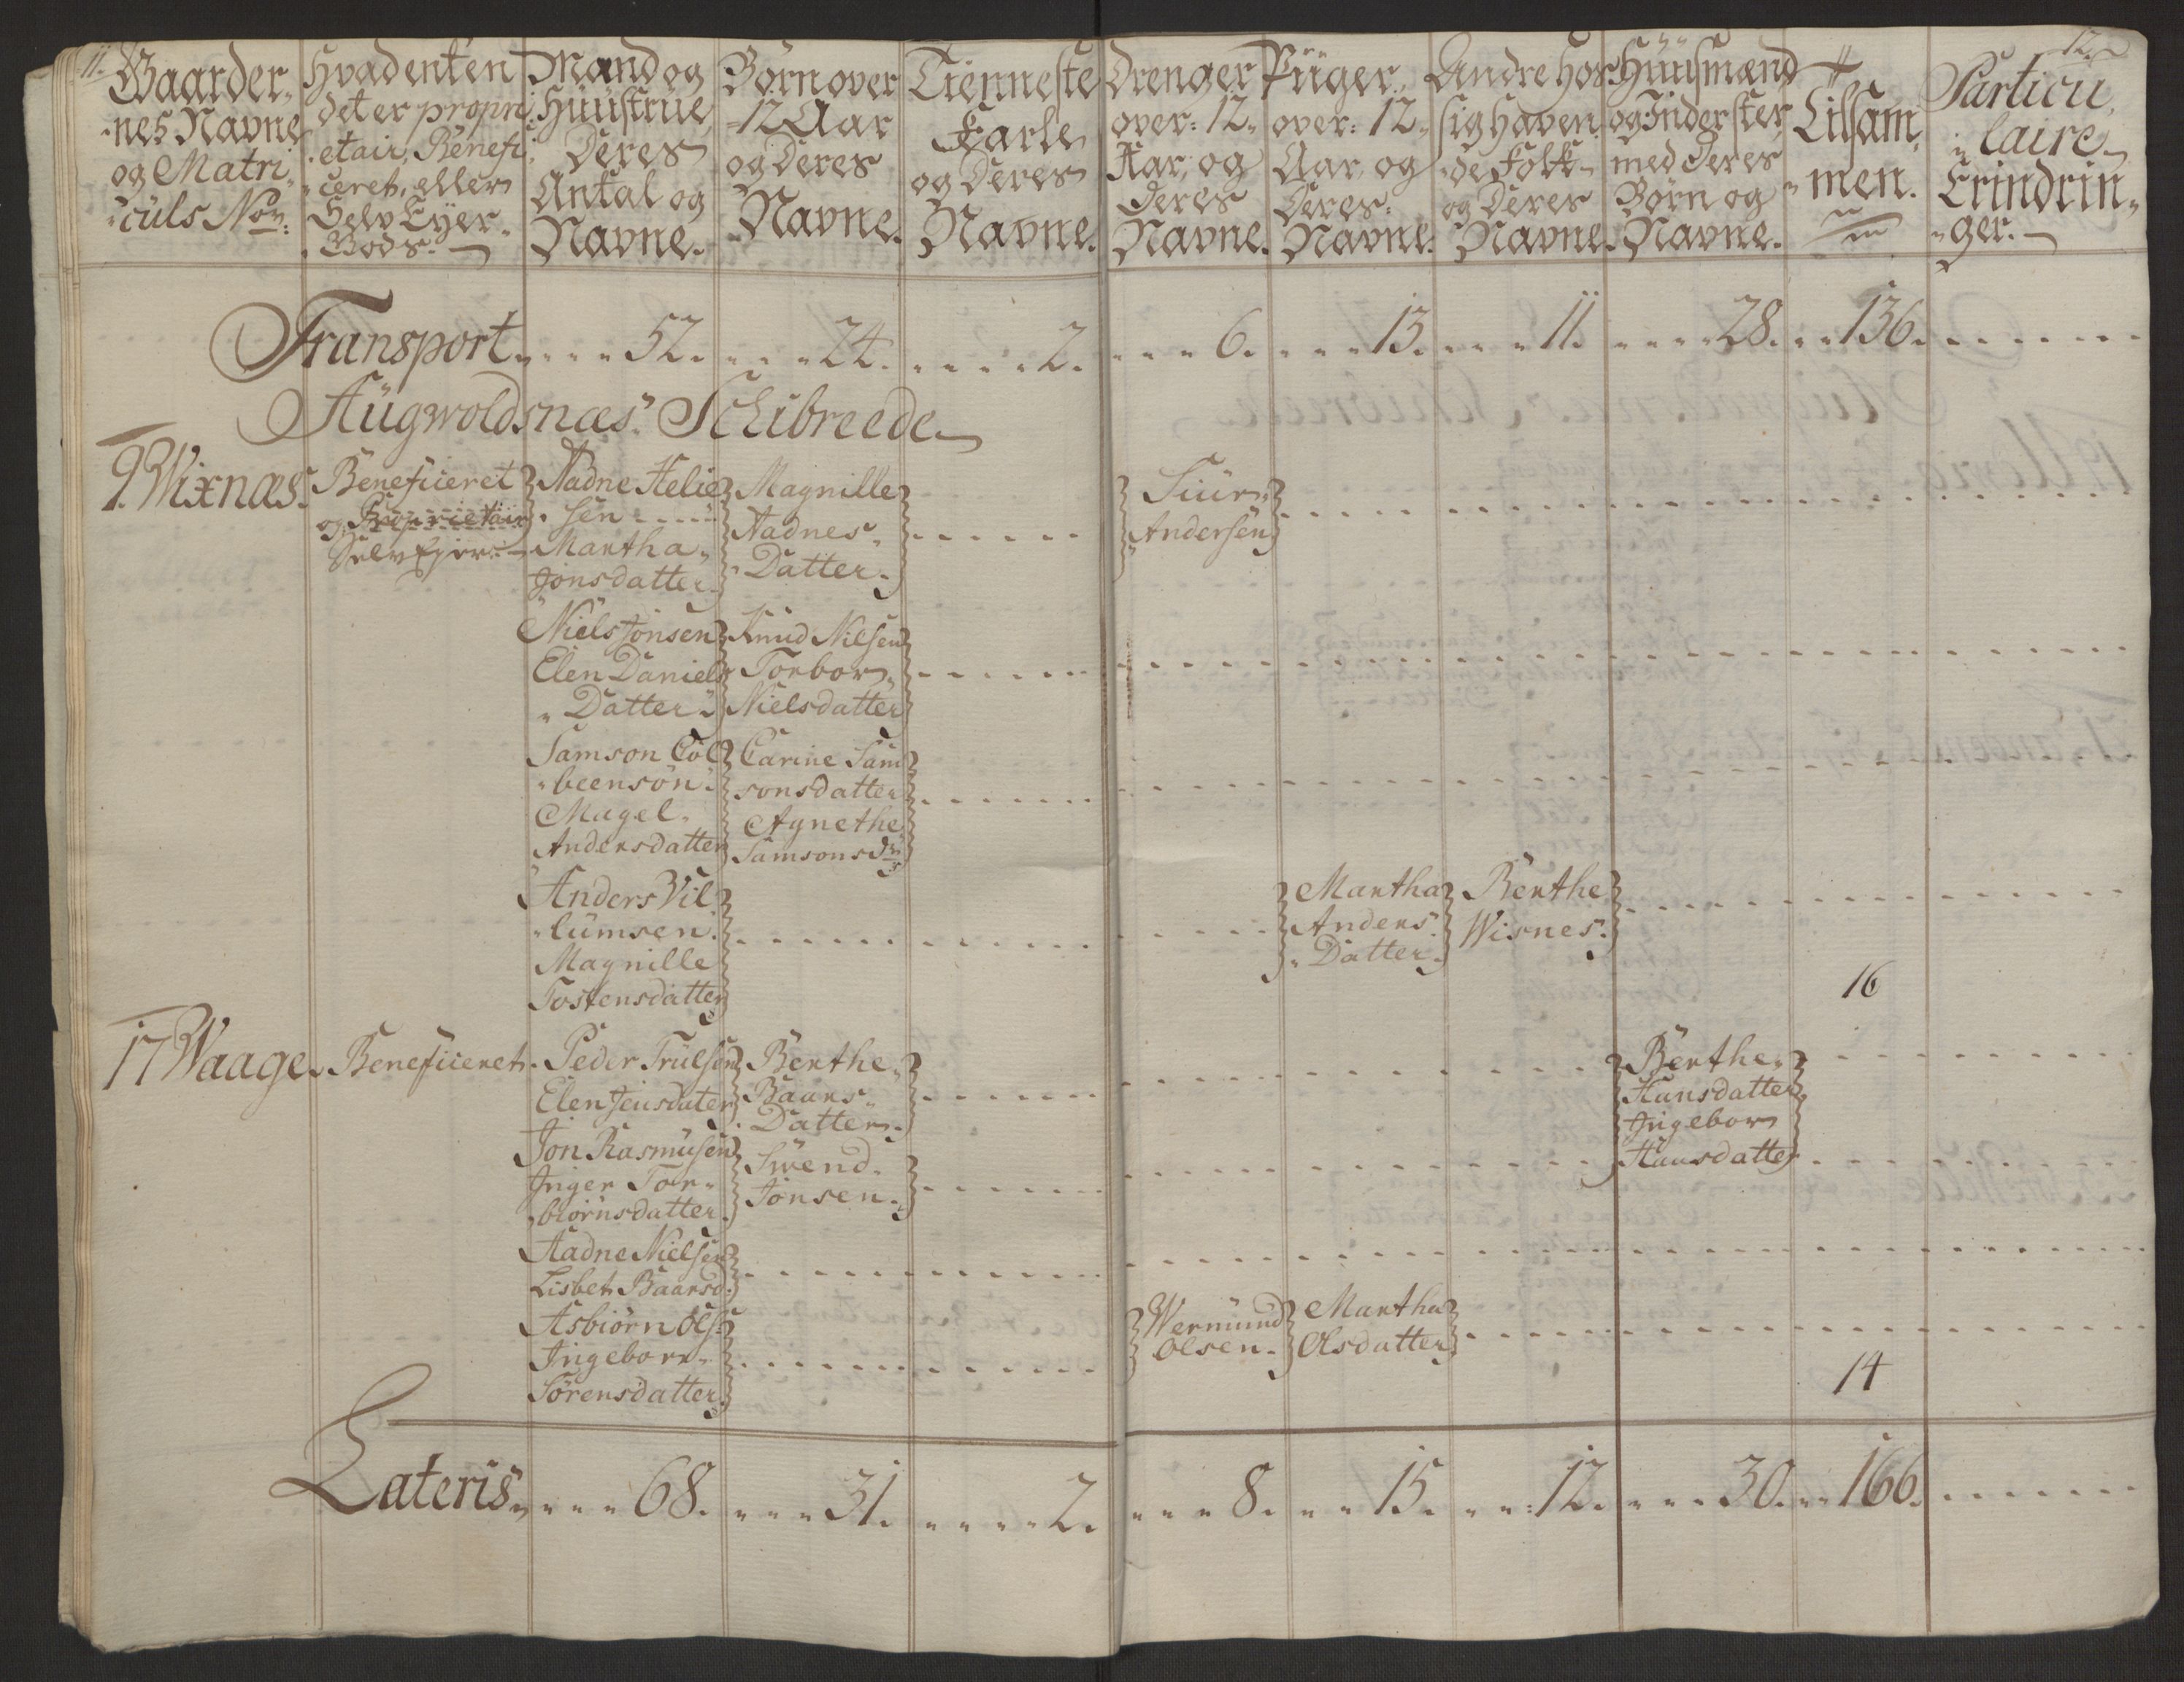 11.
12.
Gaarder,
nes Navne
og Matri,
culs No:
Hvad enten
det er propri
etair, Benefi,
ceret, eller
Selv Eyer,
Gods.
Mand og
Hüüstrüe,
Deres
Antal og
Navne.
Børn over
12 Aar
og Deres
Navne.
Tienneste
Karle
og Deres
Navne.
Drenger
over: 12
Aar, og
Deres
Navne.
Piiger
over: 12
Aar, og
Deres
Navne.
Andre hos
sig haven,
de Folk
og Deres
Navne.
Hüüsmænd
og Inderster
med Deres
Børn og
Navne.
Tilsam,
men.
Particu,
laire
Erindrin,
ger.
Transport 52. 24. 2. 6. 13. 11. 28. 136.
Augwoldsnæs Schibreede
9. Wixnæs.
Beneficeret
og Proprietair
Selv Ejer.
Aadne Helie
sen
Martha
Jonsdatter
Magnille
Aadnes
Datter.
Siür
Andersen
Niels Jonsen
Elen Daniels
Datter
Knud Nilsen
Torbor
Nielsdatter
Samson Col
beensøn.
Magel
Andersdatter
Carine Sam
sonsdatter
Agnethe
Samsonsdr
Anders Vil
lumsen.
Magnille
Tostensdatter
Martha
Anders
Datter.
Berthe
Wisnes.
16
17 Waage. Beneficeret.
Peder Trülsen
Elen Jensdater
Berthe
Baars
Datter.
Berthe
Hansdatter
Ingebor
Hansdatter
Jon Rasmüsen
Inger Tor
biørnsdatter
Swend
Jonsen.
Aadne Nielsen
Lisbet Baarsd.
Asbiørn Ols:
Ingebor
Sørensdatter
Wermünd
Olsen.
Martha
Olsdatter
14
Lateris 68. 31. 2. 8. 15. 12. 30. 166.